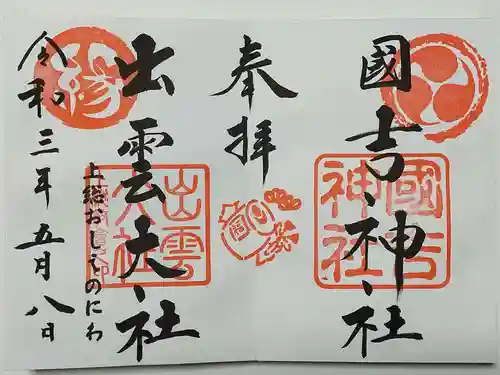 國吉神社
國吉
神社
奉拝
出雲大社
出雲
大社
縁
上総おしゑのにわ
令和三年五月八日